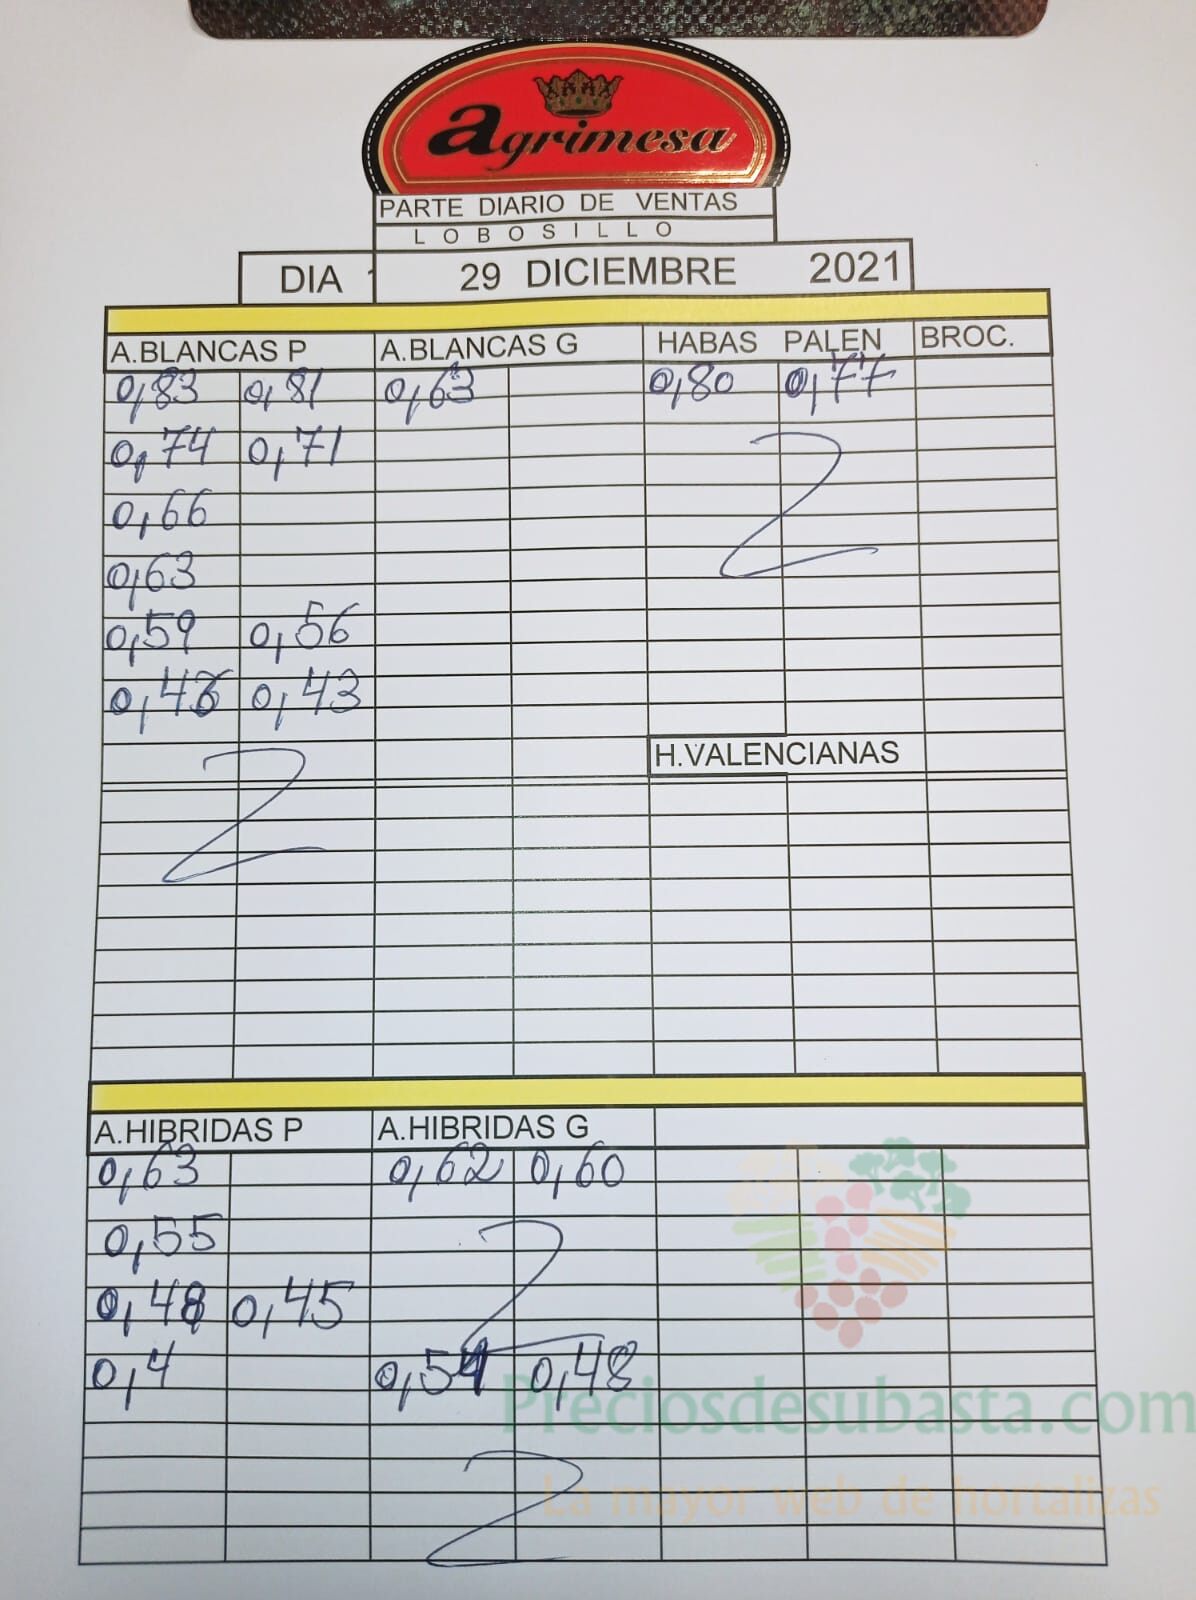 agrimesa
PARTE DIARIO DE VENTAS
LOBOSILLO
DIA 29 DICIEMBRE 2021
A.BLANCAS P A.BLANCAS G HABAS PALEN BROC.
0,83 0,81 0,63 0,80 0,77
0,74 0,71
0,66
0,63
0,59 0,56
0,43
H.VALENCIANAS
A.HIBRIDAS P A.HIBRIDAS G
0,63 0,62 0,60
0,55
0,48 0,45
0,4 0,48
Preciosdesubasta.com
La mayor web de hortalizas